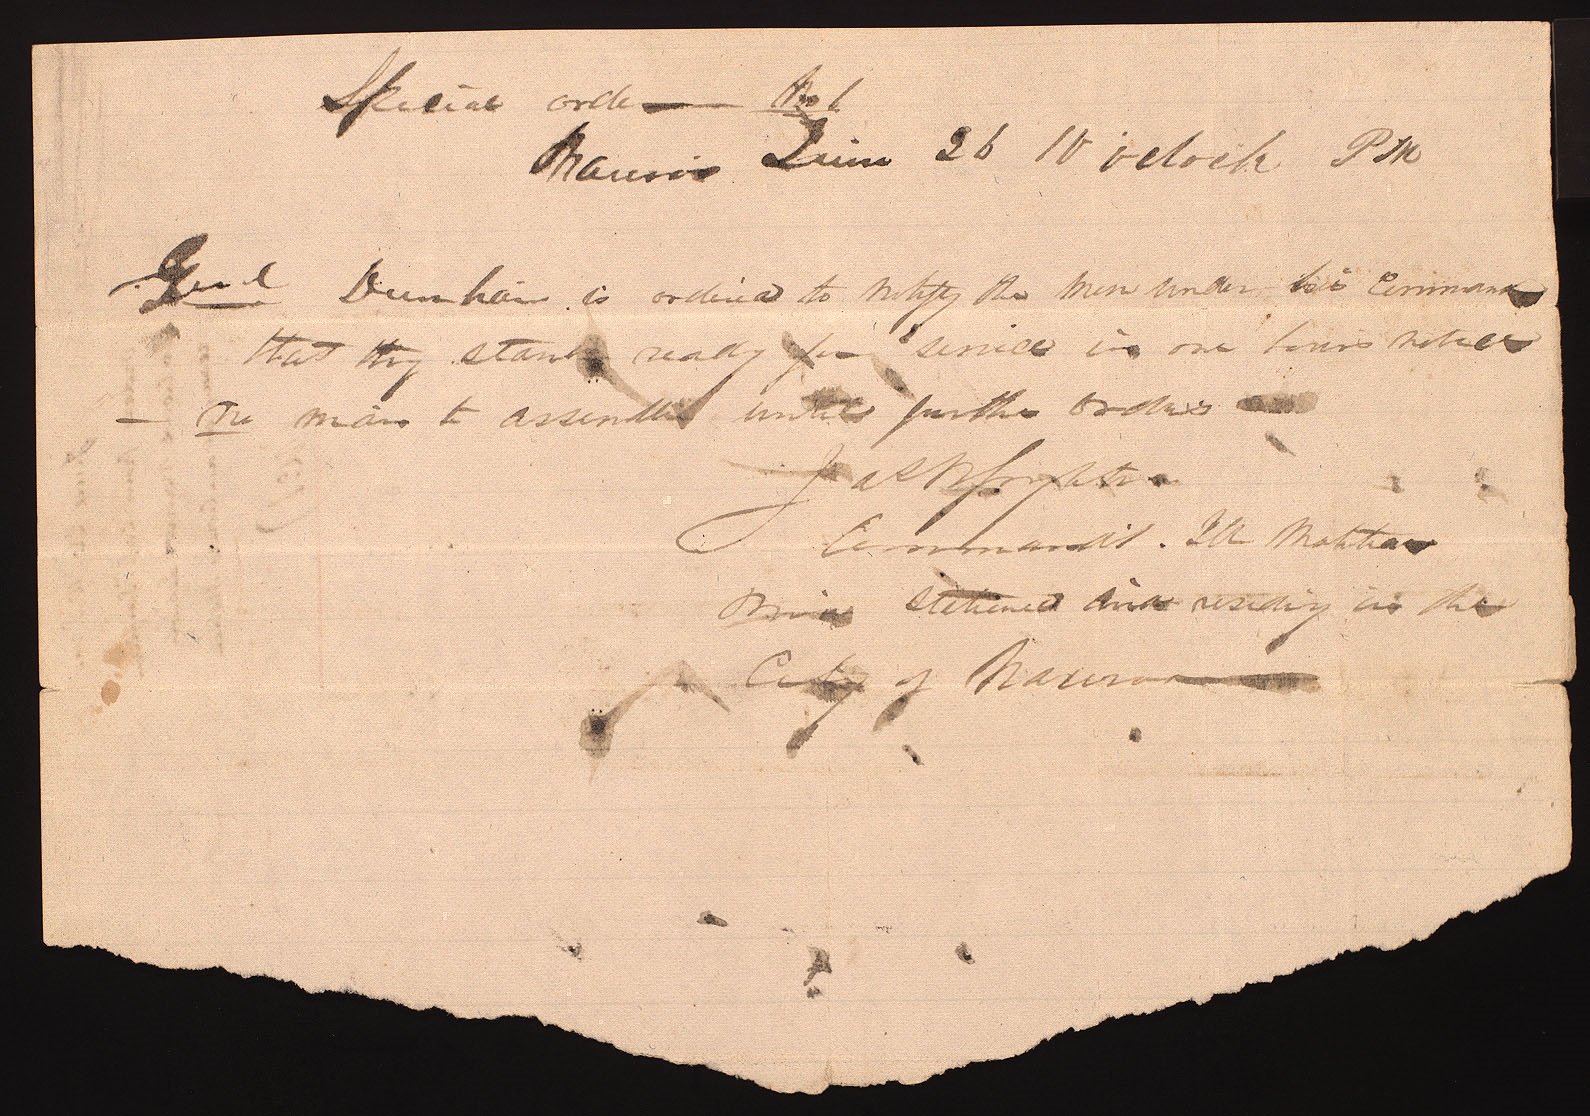 Special order — No 1
Nauvoo June 26 10 o'clock PM
Genl Dunham is ordered to notify the men under his Command
that they stand ready for service in one hours notice
— no man to assemble until further orders
Commandt. Ill Militia
stationed and residing in the
City of Nauvoo